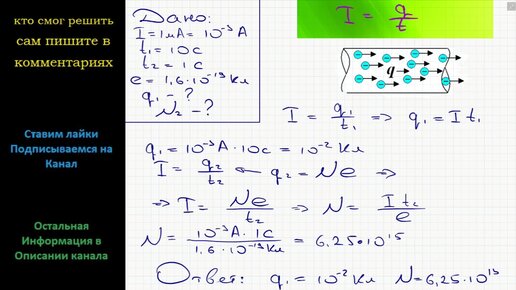 кто смог решить
сам пишите в
комментариях
Ставим лайки
Подписываемся на
Канал
Остальная
Информация в
Описании канала
Дано:
I = 1мА = 10⁻³ А
t₁ = 10с
t₂ = 1с
e = 1,6·10⁻¹⁹ Кл
q₁ - ?
N₂ - ?
I = q/t
q
I = q₁/t₁ => q₁ = I t₁
q₁ = 10⁻³А · 10с = 10⁻² Кл
I = q₂/t₂ ← q₂ = Ne =>
=> I = Ne/t₂ => N = I t₂/e
N = 10⁻³А · 1с/1,6·10⁻¹⁹Кл = 6,25·10¹⁵
Ответ: q₁ = 10⁻² Кл N = 6,25·10¹⁵